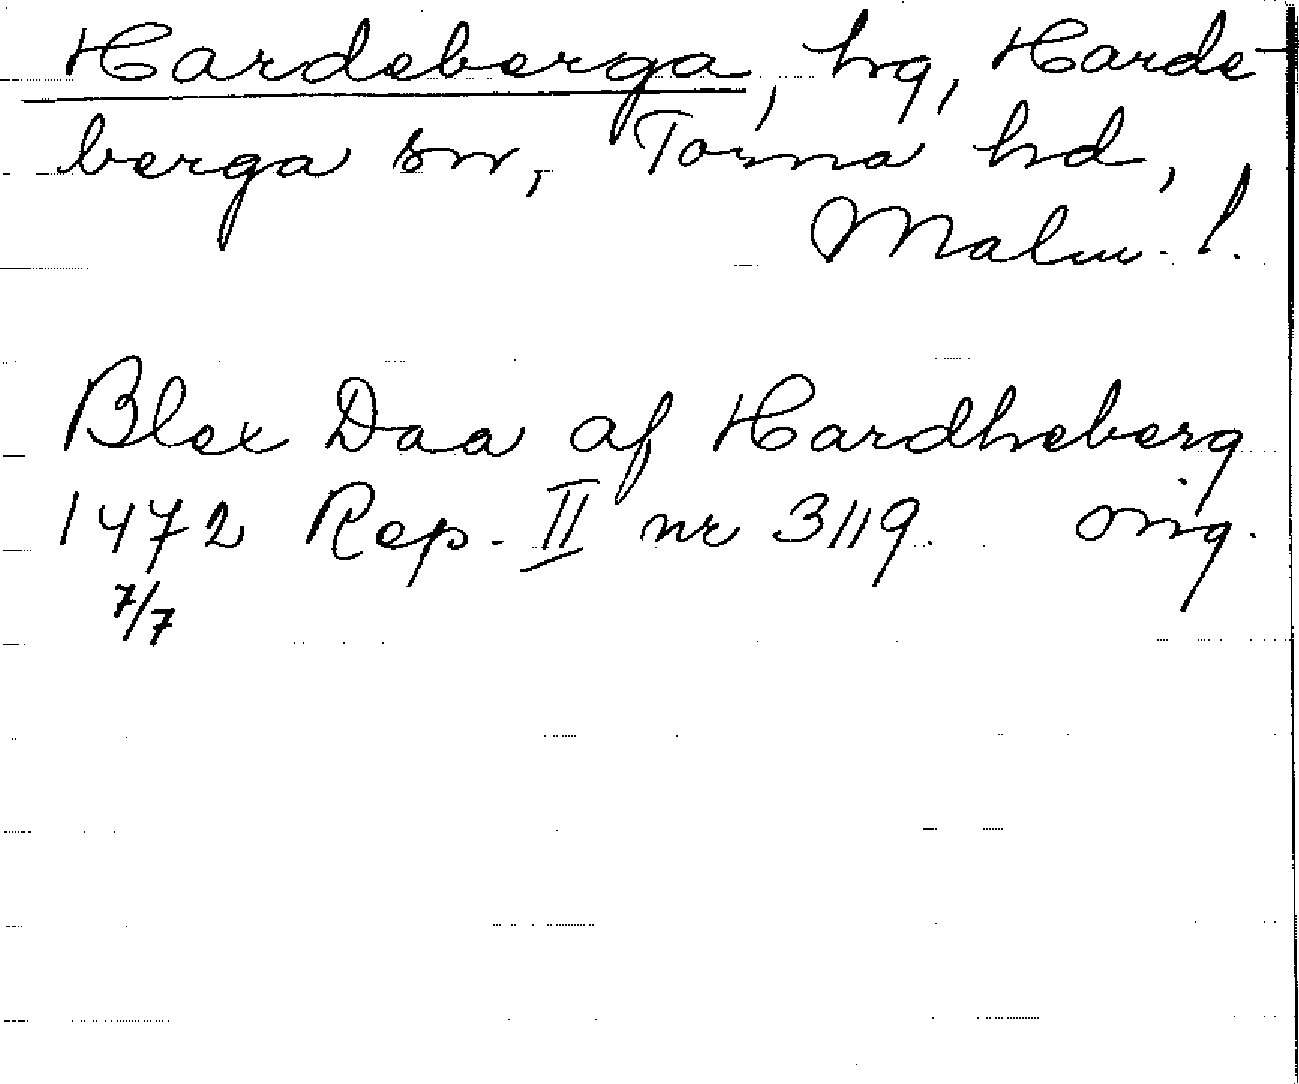 Hardeberga, hg, Harde-
berga sn, Torna hd,
Malm. l.
Blex Daa af Hardheberg
1472 Rep. II nr 3119. orig.
7/7